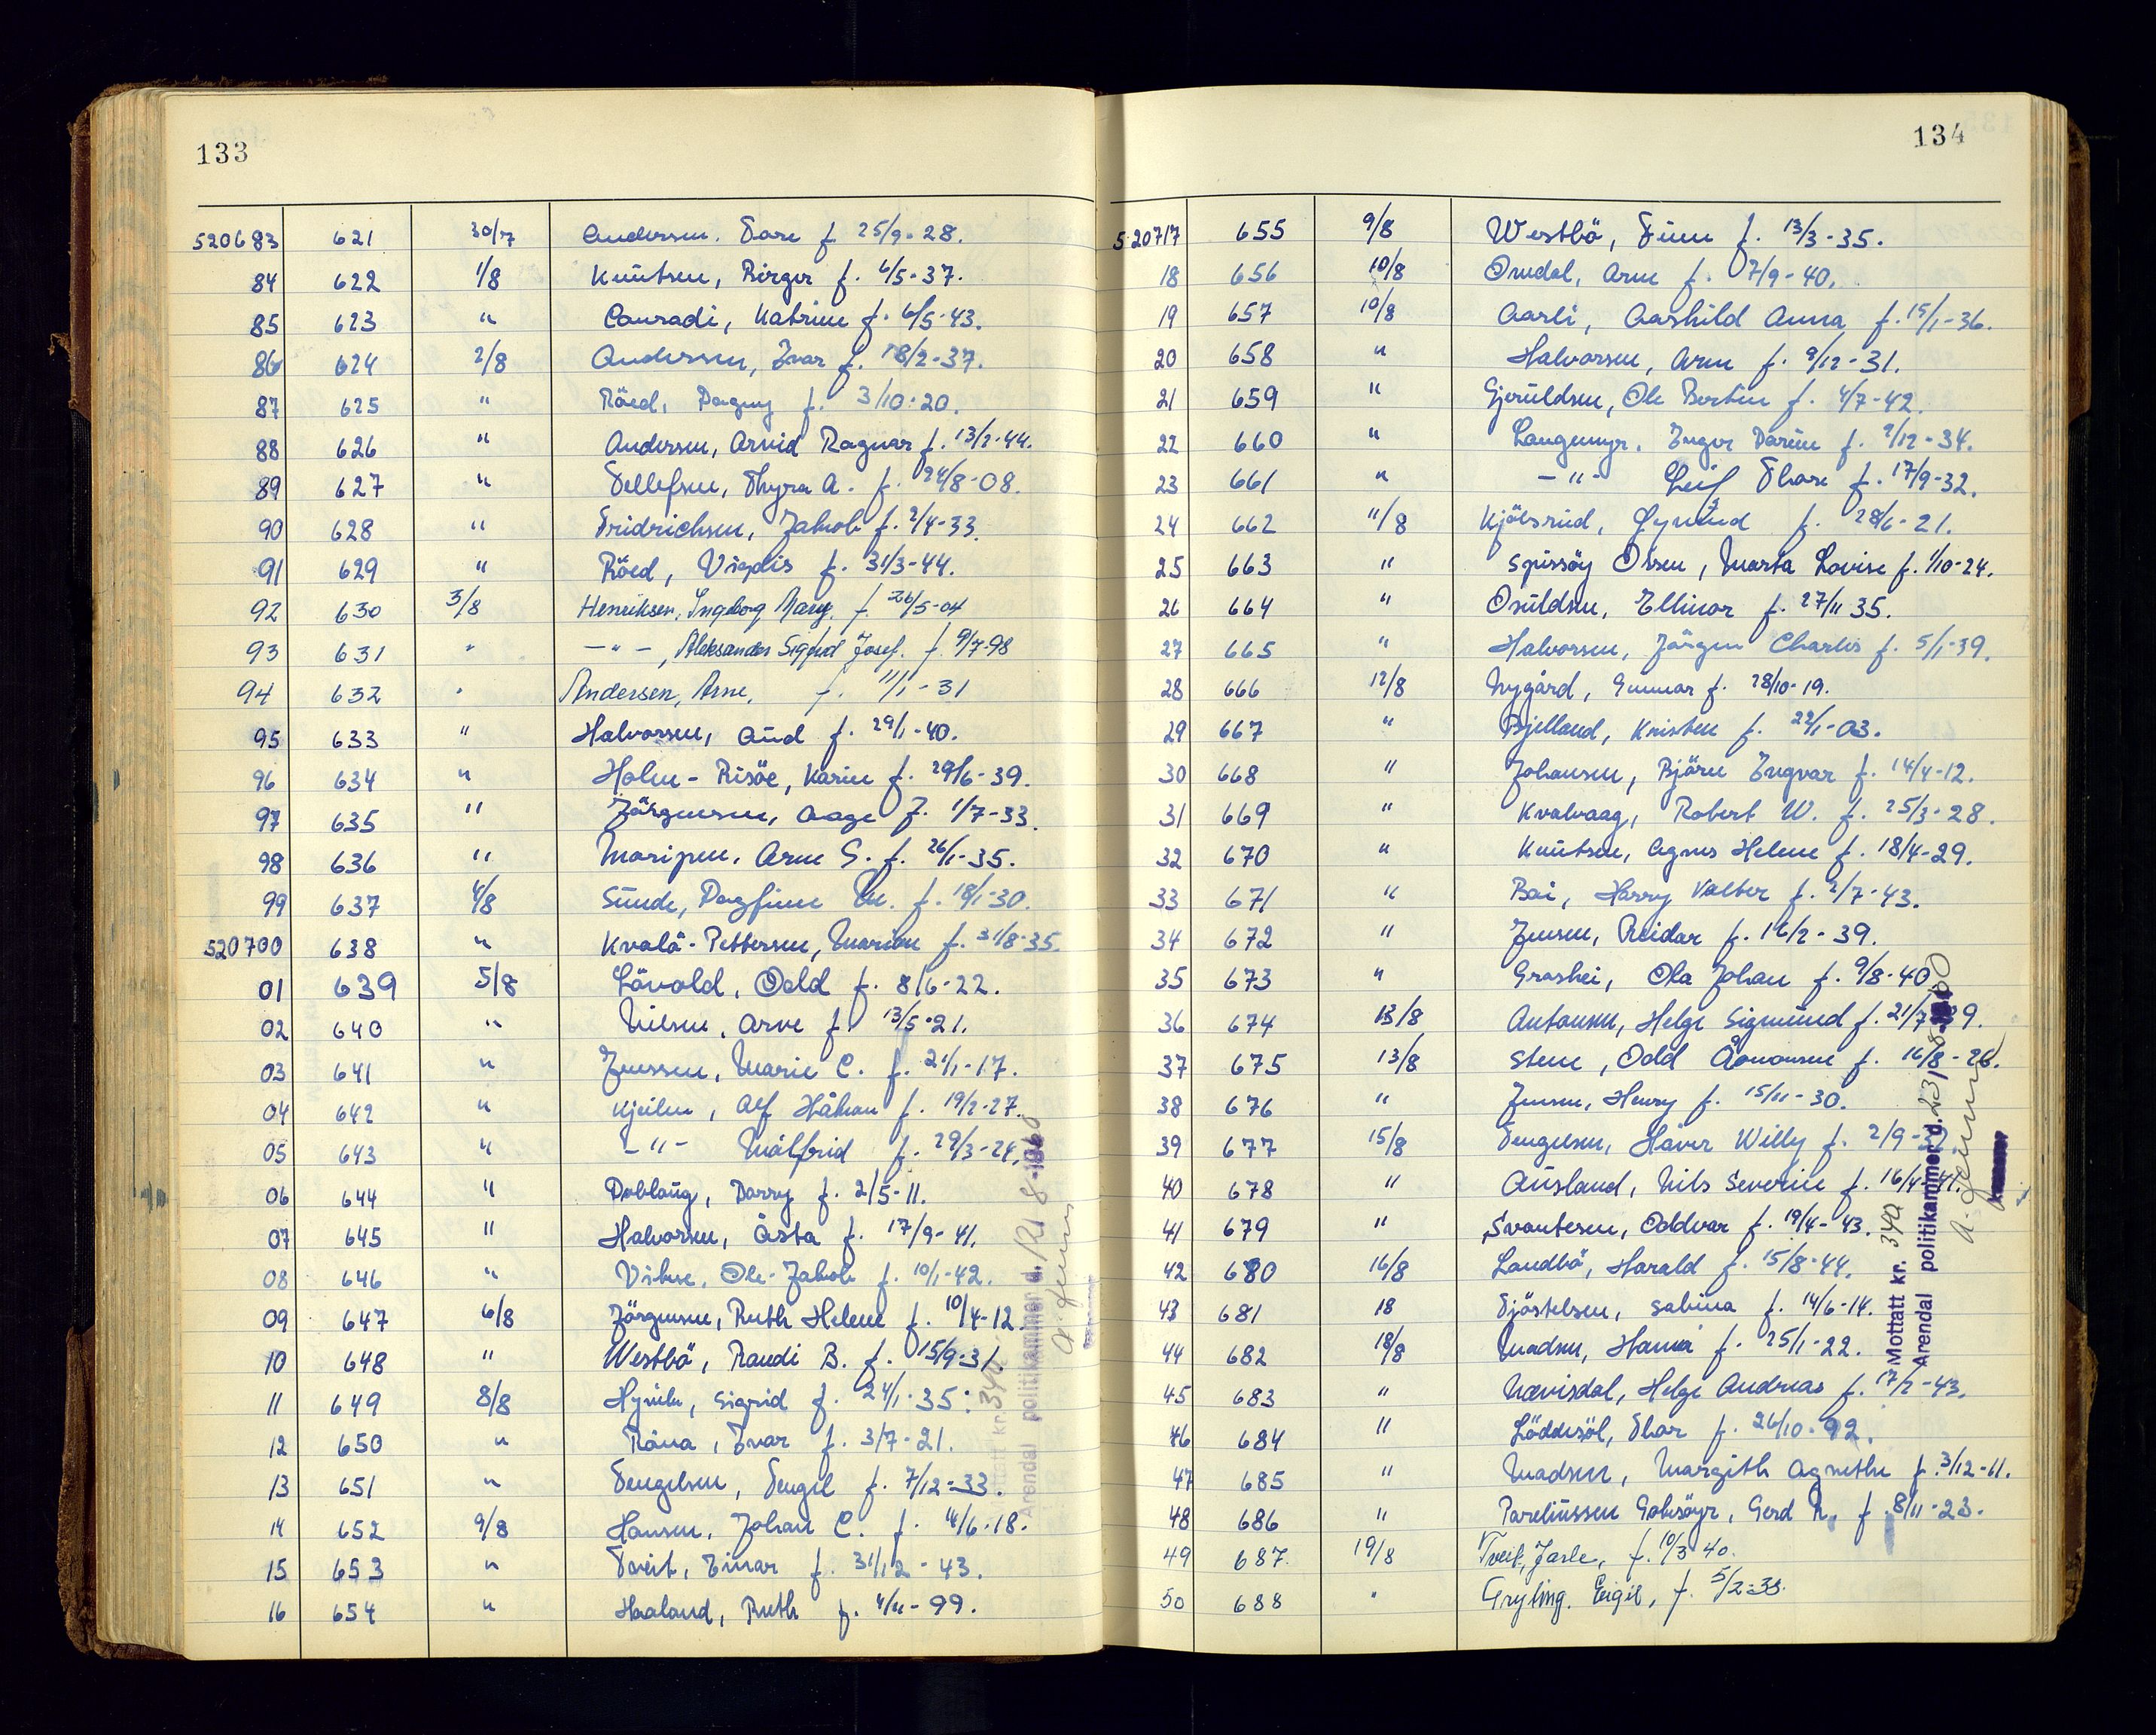 133
520683 621 30/7 Andersen. Tore f 25/9-28.
84 622 1/8 Knutsen, Birger f. 6/5-37.
85 623 " Conradi, Katrine f. 6/5-43.
86 624 2/8 Andersen, Ivar f. 18/2-37.
87 625 " Röed, Dagny f. 3/10-20.
88 626 " Andersen, Arvid Ragnar f. 13/2-44.
89 627 " Tellefsen, Thyra A. f. 24/8-08.
90 628 " Fridrichsen, Jakob f. 2/4-33.
91 629 " Röed, Vigdis f. 31/3-44.
92 630 3/8 Henriksen, Ingeborg Mary. f. 26/5-04
93 631 " -"-, Aleksander Sigfrid Josef. f. 9/7-98
94 632 " Andersen, Arne. f. 11/1-31
95 633 " Halvorsen, Aud f. 29/1-40.
96 634 " Holm-Risöe, Karin f. 29/6-39.
97 635 " Jörgensen, Aage J. 1/7-33.
98 636 " Arne S. f. 26/1-35.
99 637 4/8 Sunde, Dagfinn M. f. 18/1-30.
520700 638 " Kvalö-Pettersen, Marion f. 31/8-35.
01 639 5/8 Lövold, Odd f. 8/6-22.
02 640 " Nilsen, Arve f. 13/5-21.
03 641 " Jenssen, Marie C. f. 21/1-17.
04 642 " Kjeilen, Alf Håkon f. 19/2-27.
05 643 " -"- Målfrid f. 29/3-24.
06 644 " Doblaug, Borry f. 2/5-11.
07 645 " Halvorsen, Åsta f. 17/9-41.
08 646 " Ole-Jakob f. 10/1-42.
09 647 6/8 Jörgensen, Ruth Helene f. 10/4-12.
10 648 " Westbö, Randi B. f. 15/9-31.
11 649 8/8 Sigrid f. 24/1-35.
12 650 " Råna, Ivar f. 3/7-21.
13 651 " Tengelsen, Tengel f. 7/12-33.
14 652 9/8 Hansen, Johan C. f. 4/6-18.
15 653 " Tveit, Einar f. 31/12-43.
16 654 " Haaland, Ruth f. 4/11-99.
Mottatt kr. 340
Arendal politikammer d. 12/8-1960
A. Jensen
134
520717 655 9/8 Westbö, Finn f. 13/3-35.
18 656 10/8 Omdal, Arne f. 7/9-40.
19 657 10/8 Aarli, Aashild Anna f. 15/1-36.
20 658 " Halvorsen, Arne f. 9/12-31.
21 659 " Gjeruldsen, Ole Bertin f. 4/7-42.
22 660 " Langemyr, Inger Karin f. 2/12-34.
23 661 " -"- Leif Thore f. 17/9-32.
24 662 11/8 Kjölsrud, Öymund f. 28/6-21.
25 663 " Spissöy Olsen, Marta Lovise f. 1/10-24.
26 664 " Osuldsen, Ellinor f. 27/11 35.
27 665 " Halvorsen, Jörgen Charles f. 5/1-39.
28 666 12/8 Nygård, Gunnar f. 28/10-19.
29 667 " Bjelland, Kristen f. 22/1-03.
30 668 " Johansen, Björn Ingvar f. 14/4-12.
31 669 " Kvalvaag, Robert W. f. 25/3-28.
32 670 " Knutsen, Agnes Helene f. 18/4-29.
33 671 " Boi, Harry Valter f. 2/7-43.
34 672 " Jensen, Reidar f. 16/2-39.
35 673 " Grashei, Ola Johan f. 9/8-40.
36 674 13/8 Antonsen, Helge Sigmund f. 21/7- 9.
37 675 13/8 Stene, Odd Åomonsen f. 16/8-26.
38 676 " Jensen, Henry f. 15/11-30.
39 677 15/8 Tengelsen, Håver Willy f. 2/9-
40 678 " Ausland, Nils Severin f. 16/4-41.
41 679 " Svantesen, Oddvar f. 19/4-43.
42 680 16/8 Landbö, Harald f. 15/8-44.
43 681 18 Sjöstelsen, Sabina f. 14/6-14.
44 682 18/8 Madsen, Hanna f. 25/1-22.
45 683 " Nævisdal, Helge Andreas f. 17/2-43.
46 684 " Löddesöl, Thor f. 26/10-92.
47 685 " Madsen, Margith Agnethe f. 3/12-11.
48 686 " Pareliussen Goksöyr, Gerd R. f. 8/11-23.
49 687 19/8 Tveit, Jarle, f. 10/3 40.
50 688 " Gryting. Eigil, f. 5/2-33.
Mottatt kr. 340
Arendal politikammer d. 23/8-1960
A. Jensen